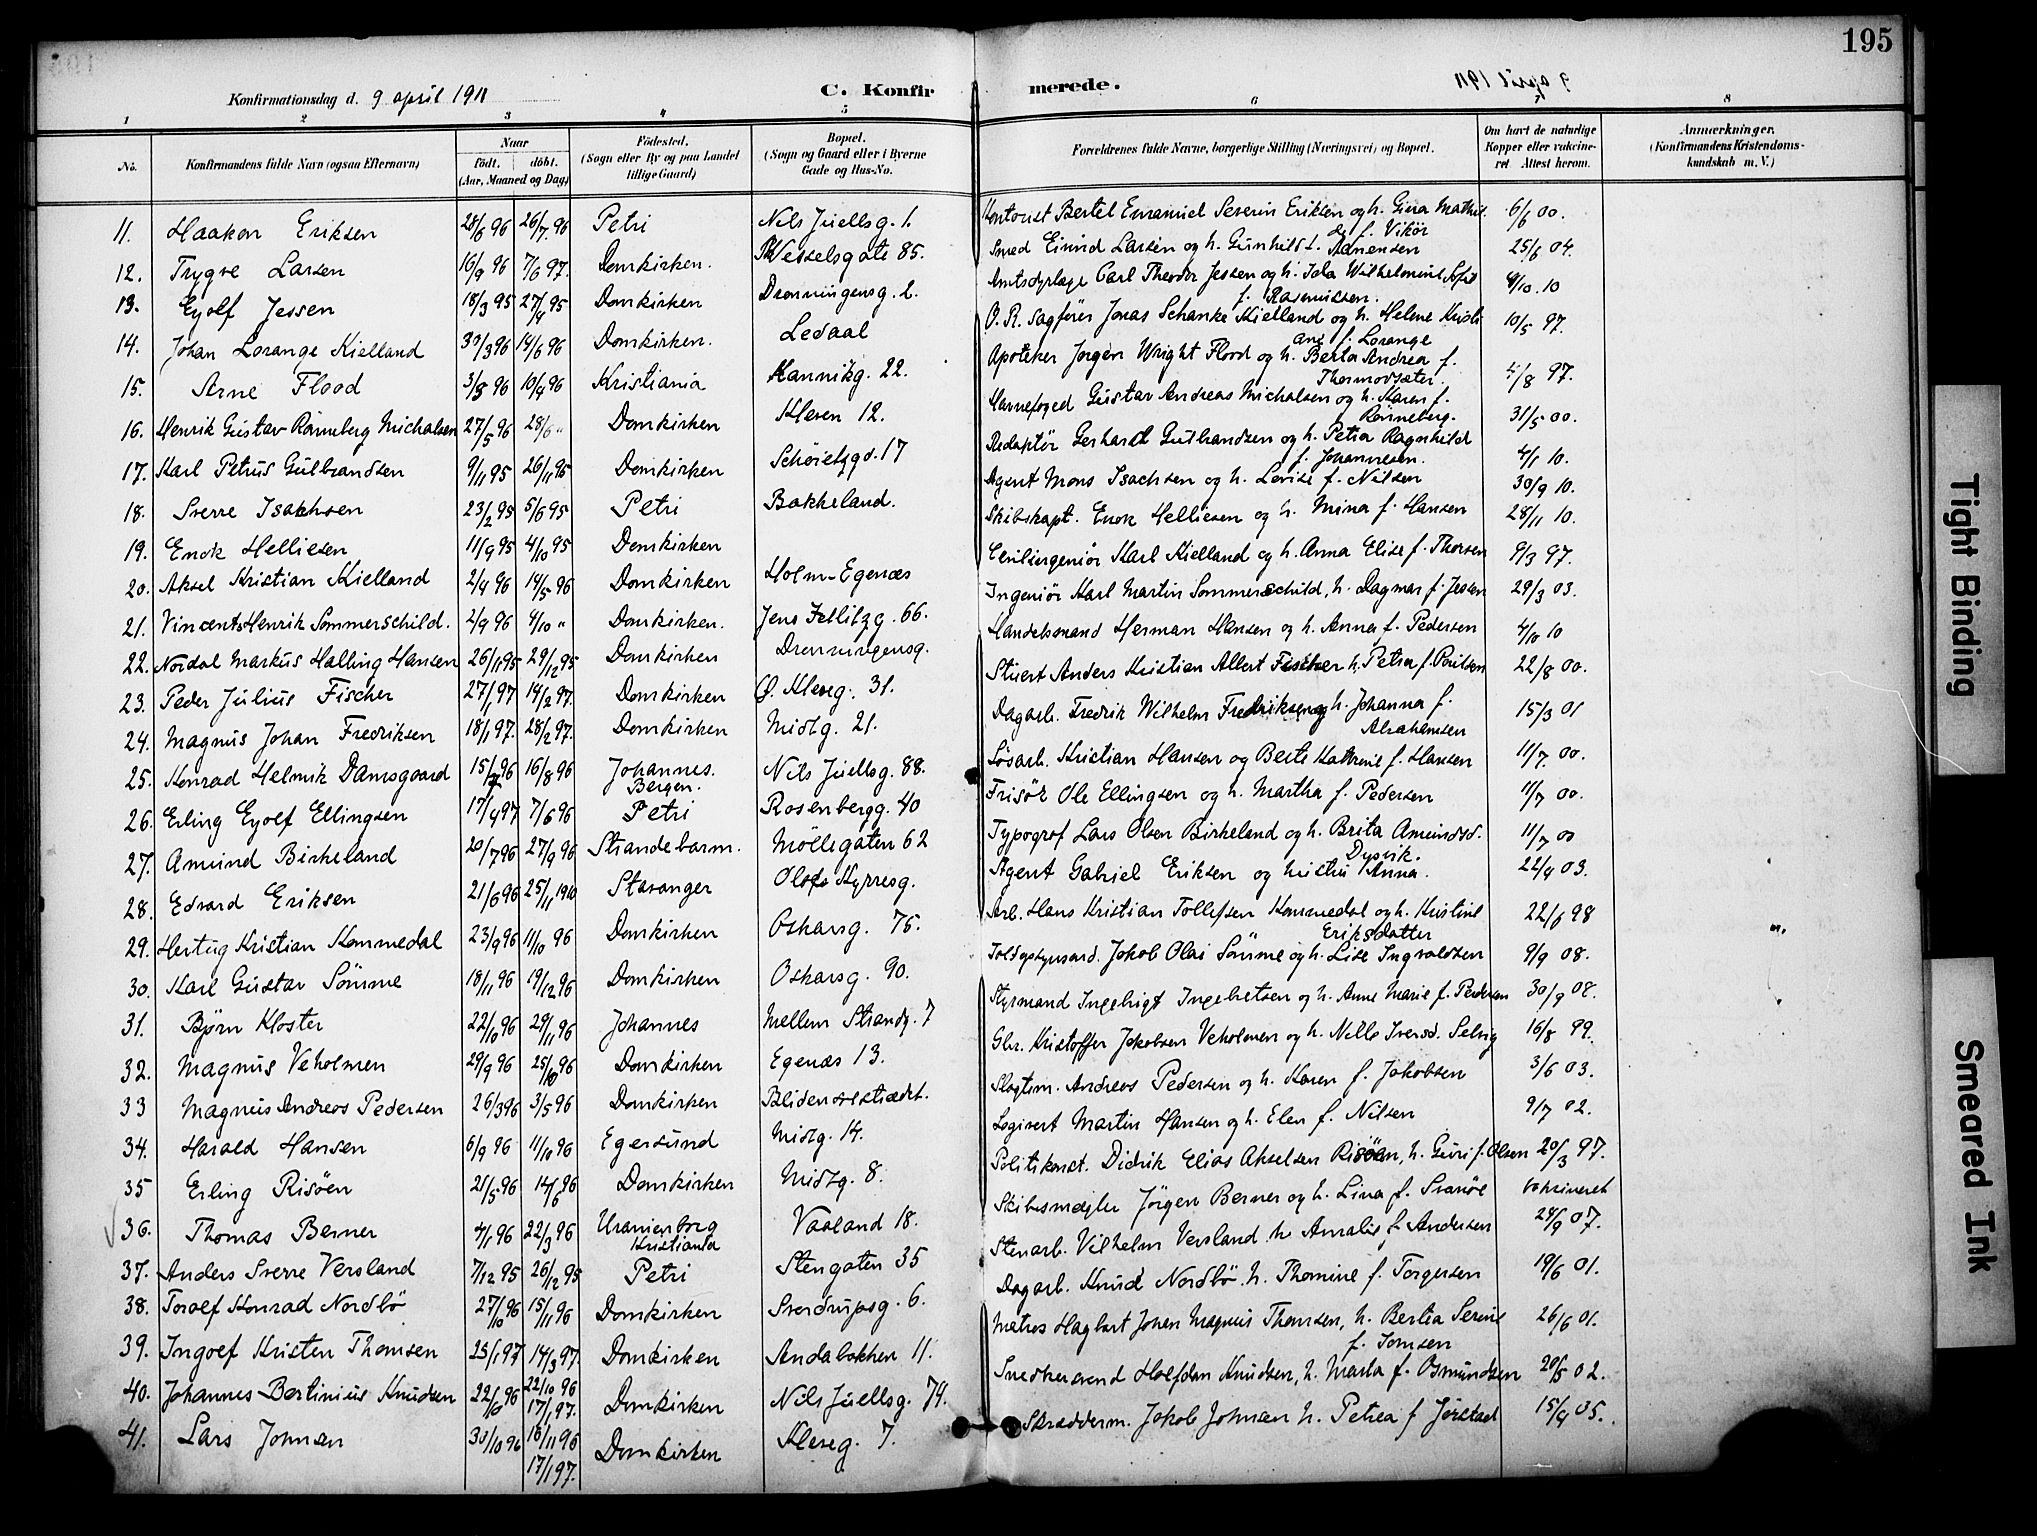 195
Konfirmationsdag d. 9 april 1911
C. Konfirmerede.
1 2 3 4 5 6 7 8
No. Konfirmandens fulde Navn (ogsaa Efternavn) Naar født. døbt. (Aar, Maaned og Dag) Fødested. (Sogn eller By og paa Landet tillige Gaard) Bopæl. (Sogn og Gaard eller i Byerne Gade og Hus-No. Forældrenes fulde Navne, borgerlige Stilling (Næringsvei) og Bopæl. Om havt de naturlige Kopper eller vaccineret Attest herom. Anmærkninger. (Konfirmandens Kristendomskundskab m. V.)
11. Haakon Eriksen 28/6 96 26/7 96 Petri Nils Juellsg. 1. Bertel Emanuel Severin Eriksen og h. Gina Mathil- 6/6 00.
de f. Vikør
12. Trygve Larsen 16/9 96 7/6 97. Domkirken. Wesselsgate 85. Smed Eivind Larsen og h. Gunhild f. Aanensen 25/6 04.
13. Eyolf Jessen 18/3 95 27/4 95 Domkirken Dronningensg. 2. Amtsdyrlæge Carl Theodor Jessen og h. Ida Wilhelmine Sofie 4/10 10
f. Rasmussen.
14. Johan Lorange Kielland 30/3 96 14/6 96 Domkirken. Ledaal O. R. Sagfører Jonas Schanke Kielland og h. Helene Kristi- 10/5 97.
ane f. Lorange
15. Arne Flood 3/8 96 10/9 96 Kristiania Kannikg. 22. Apoteker Jørgen Wright Flood og h. Berta Andrea f. 4/8 97.
Thormodsæter.
16. Henrik Gustav Rønneberg Michalsen 27/5 96 28/6 " Domkirken Kleven 12. Havnefoged Gustav Andreas Michalsen og h. Karen f. 31/5 00.
Rønneberg.
17. Karl Petrus Gulbrandsen 9/11 95 26/11 95 Domkirken 17 Redaktør Gerhardt Gulbrandsen og h. Petra Ragnhild 4/1 10.
f. Johannesen.
18. Sverre Isachsen 23/2 95 5/6 95 Petri Bakkeland. Agent Mons Isachsen og h. Lovise f. Nilsen 30/9 10.
19. Enok Helliesen 11/9 95 4/10 95 Domkirken Skibskapt. Enok Helliesen og h. Mina f. Hansen 28/11 10.
20. Aksel Kristian Kielland 2/4 96 14/5 96 Domkirken Holm-Egenæs Civilingeniør Karl Kielland og h. Anna Elise f. Thorsen 9/3 97.
21. Vincent Henrik Sommerschild. 2/9 96 4/10 " Domkirken. Jens Zetlitzg. 66. Ingeniør Karl Martin Sommerschild, h. Dagmar f. Jessen 29/3 03.
22. Nordal Markus Halling Hansen 26/11 95 29/12 95 Domkirken Dronningensg. Handelsmand Herman Hansen og h. Anna f. Pedersen 4/10 10
23. Peder Julius Fischer 27/1 97 14/2 97. Domkirken Ø. Kleveg. 31. Stuert Anders Kristian Albert Fischer h. Petra f. Poulsen 22/8 00.
24. Magnus Johan Fredriksen 18/1 97. 28/2 97. Domkirken Midtg. 21. Dagarb. Fredrik Wilhelm Fredriksen og h. Johanna f. 15/3 01
Abrahamsen
25. Konrad Helmik Damsgaard 15/7 96 16/8 96 Johannes. Nils Juellsg. 88. Løsarb. Kristian Hansen og Berte Kathrine f. Hansen 11/7. 00.
Bergen.
26. Erling Eyolf Ellingsen 17/4 97 7/6 96 Petri Rosenbergg. 40 Frisør Ole Ellingsen og h. Martha f. Pedersen 11/7 00.
27. Amund Birkeland 20/7 96 27/9 96 Strandebarm. Møllegaten 62 Typograf Lars Olsen Birkeland og h. Brita Amundsd. 11/7 00
Dysvik.
28. Edvard Eriksen 21/6 96 25/11 1910 Stavanger Olafs Kyrresg. Agent Gabriel Eriksen og hustru Anna. 22/4 03.
29. Hertug Kristian Kommedal 23/9 96 11/10 96 Domkirken Oskarsg. 75. Arb. Hans Kristian Tollefsen Kommedal og h. Kristine 22/6 98
Eriksdatter
30. Karl Gustav Sømme 18/11 96 19/12 96 Domkirken Oskarsg. 90. Toldopsynsmd. Jakob Olai Sømme og h. Lise Ingvaldsen 9/9 08.
31. Bjørn Kloster 22/10 96 29/11 96 Johannes Mellem Strandg. 7 Styrmand Ingebrigt Ingebretsen og h. Anne Marie f. Pedersen 30/9 08.
32. Magnus Veholmen 29/9 96 25/10 96 Domkirken Egenæs 13. Kristoffer Jakobsen Veholmen og h. Nille Iversd. Selvig 16/8 99.
33 Magnus Andreas Pedersen 26/3 96 3/5 96 Domkirken Blidensolstrædet. Slagtem. Andreas Pedersen og h. Karen f. Jakobsen 3/6 03.
34. Harald Hansen 6/9 96 11/10 96 Egersund Midtg. 14. Logivert Martin Hansen og h. Elen f. Nilsen 9/7 02.
35 Erling Risøen 21/5 96 14/6 96 Domkirken Midtg. 8. Politikonst. Didrik Elias Akselsen Risøen, h. Guri f. Olsen 20/3 97.
36. Thomas Berner 4/1 96 22/3 96 Uranienborg Vaaland 18. Skibsmægler Jørgen Berner og h. Lina f. Svanøe vakcineret
Kristiania
37. Anders Sverre Versland 7/12 95 26/12 95 Petri Stengaten 35 Stenarb. Vilhelm Versland h. Amalie f. Andersen 24/9 07.
38. Torolf Konrad Nordbø 27/10 96 15/11 96 Domkirken Sverdrupsg. 6. Dagarb. Knud Nordbø. h. Thomine f. Torgersen 19/6 01.
39. Ingolf Kristen Thomsen 25/1 97 14/3 97. Domkirken Sandabakken 11. Matros Hagbart Johan Magnus Thomsen, h. Bertea Serine 26/6 01.
f. Tomsen
40. Johannes Bertinius Knudsen 22/9 96 22/10 96 Domkirken Nils Juellsg. 74. Snedkersvend Halfdan Knudsen, h. Marta f. Osmundsen 20/5 02.
17/1 97.
41. Lars Johnsen 30/10 96 16/11 96 Domkirken Kleveg. 7. Skrædderm. Jakob Johnsen h. Petrea f. Jørstad 15/9 05.
17/1 97.
Tight Binding
Smeared Ink